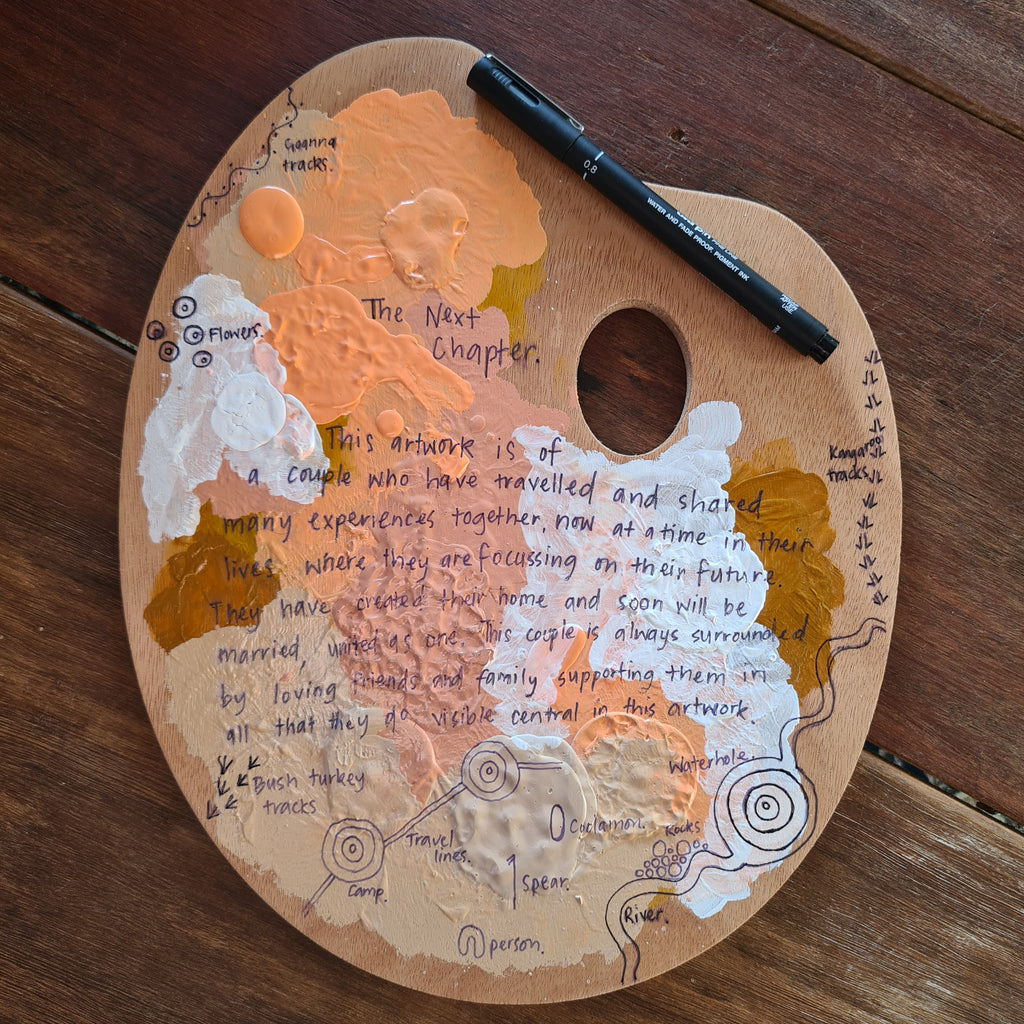 Goanna
tracks.
0.8
WATER AND FADE PROOF, PIGMENT INK
Flowers.
The Next
Chapter.
This artwork is of
a couple who have travelled and shared
many experiences together, now at a time in their
lives where they are focussing on their future.
They have created their home and soon will be
married, united as one. This couple is always surrounded
by loving friends and family supporting them in
all that they do visible central in this artwork.
Kangaroo
tracks.
Bush turkey
tracks
Waterhole.
Travel
lines.
Camp.
Coolamon.
Rocks
Spear.
River.
person.